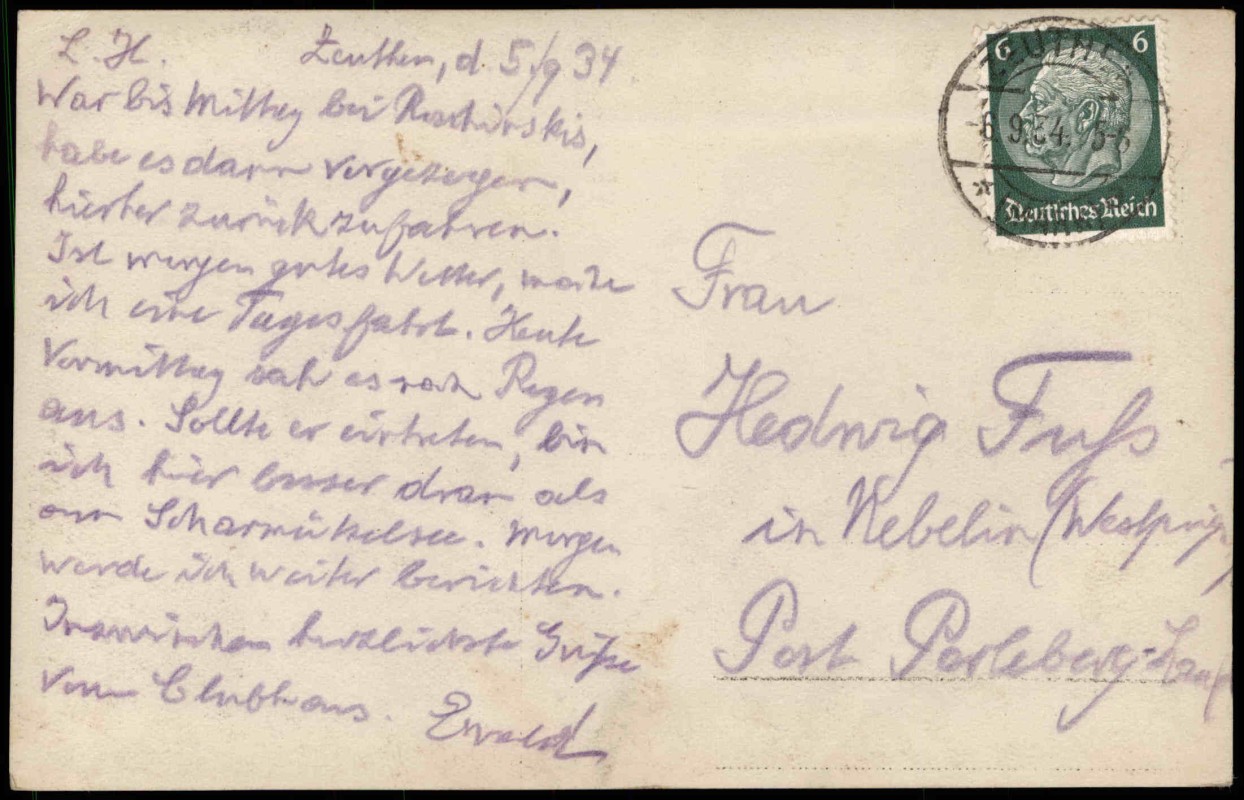 L. H. Zeuthen, d. 5./9 34
War bis Mittag bei
habe es dann vorgezogen,
hierher zurückzufahren.
Ist morgen gutes Wetter, mache
ich eine Tagesfahrt. Heute
Vormittag sah es nach Regen
aus. Sollte er eintreten, bin
ich hier besser dran als
am Scharmützelsee. Morgen
werde ich weiter berichten.
Inzwischen herzlichste Grüße
vom Clubhaus. Ewald
6 6
ZEUTHEN
-6.9.34. 5-6
Deutsches Reich
Frau
Hedwig Fuß
in Nebelin (Westprig.)
Post Perleberg-Land